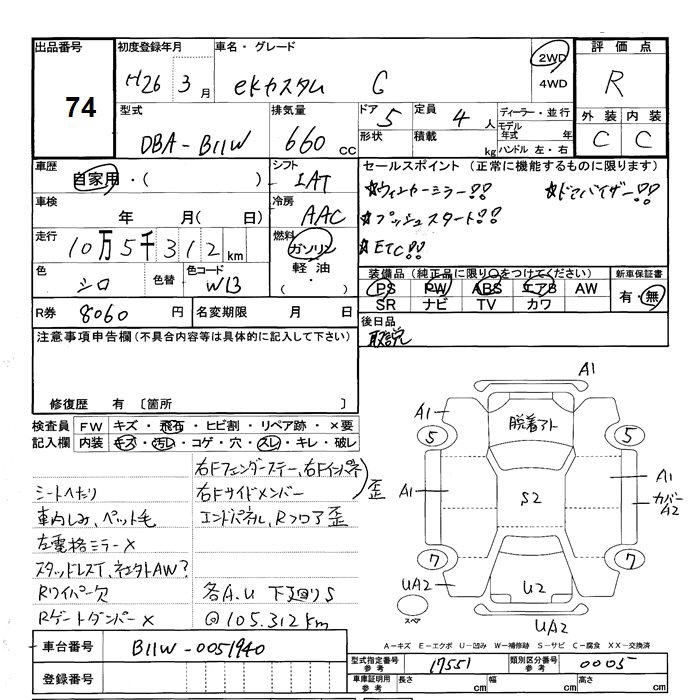 出品番号
74
初度登録年月
H26 3月
車名・グレード
eKカスタム G
2WD
4WD
評価点
R
外装 内装
C C
型式
DBA-B11W
排気量
660 cc
ドア 5
形状
定員 4人
積載 kg
ディーラー・並行
モデル年式 年
ハンドル 左・右
車歴
自家用・( )
シフト
IAT
車検
年 月( 日)
冷房
AAC
走行
10万5千312km
燃料
ガソリン
軽油
( ・ )
色
シロ
色替
色コード
W13
セールスポイント (正常に機能するものに限ります)
☆ウィンカーミラー!! ☆ドアバイザー!!
☆プッシュスタート!!
☆ETC!!
装備品(純正品に限り○をつけてください)
PS PW ABS エアB AW
SR ナビ TV カワ
新車保証書
有・無
R券 8060円
名変期限 月 日
後日品
取説
注意事項申告欄(不具合内容等は具体的に記入して下さい)
修復歴 有 〔箇所 〕
検査員記入欄
FW キズ・飛石・ヒビ割・リペア跡・×要
内装 キズ・汚レ・コゲ・穴・スレ・キレ・破レ
右Fフェンダーステー、右Fインパネ
シートへたり 右Fサイドメンバー 歪
車内しみ、ペット毛 エンドパネル、Rフロア歪
左電格ミラー×
スタッドレスT、社外AW?
Rワイパー欠 各A.U 下廻りS
Rゲートダンパー× @105.312km
車台番号 B11W-0051940
登録番号
A1
A1
脱着アト
5
5
A1
S2
A1
カバーA2
7
7
UA2
U2
スペア
UA2
A-キズ E-エクボ U-凹み W-補修跡 S-サビ C-腐食 XX-交換済
型式指定番号 参考 17551
類別区分番号 参考 0005
車庫証明用 参考
長さ cm
幅 cm
高さ cm